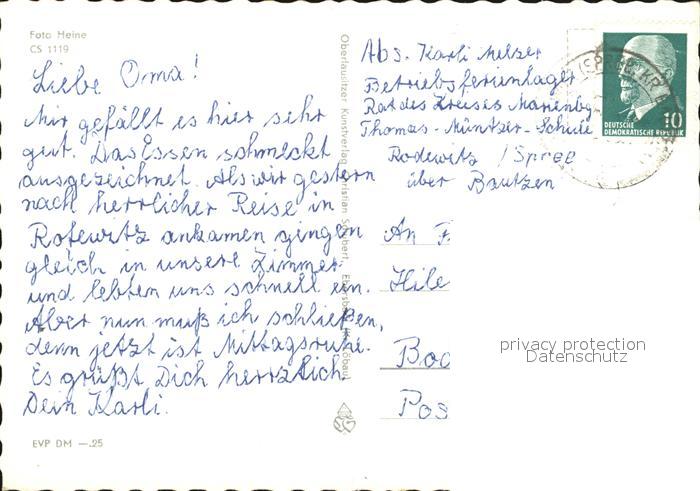 Foto Heine
CS 1119
Liebe Oma!
Mir gefällt es hier sehr
gut. Das Essen schmeckt
ausgezeichnet. Als wir gestern
nach herrlicher Reise in
Rodewitz ankamen gingen
gleich in unsere Zimmer
und lebten uns schnell ein.
Aber nun muß ich schließen,
denn jetzt ist Mittagsruhe.
Es grüßt Dich herzlich
Dein Karli.
EVP DM —.25
Oberlausitzer Kunstverlag Christian Schubert, Ebersbach
Abs. Karli Melzer
Betriebsferienlager
Rat des Kreises Marienbg
Thomas-Müntzer-Schule
Rodewitz / Spree
über Bautzen
DEUTSCHE
DEMOKRATISCHE REPUBLIK
10
An F
Hile
Boc
Pos
privacy protection
Datenschutz